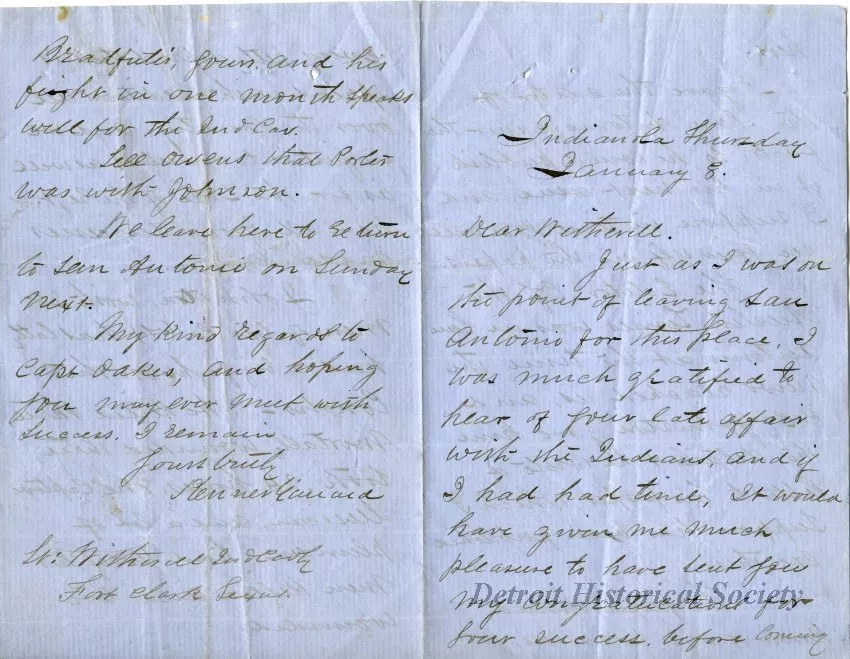 Indianola Thursday
January 8.
Dear Witherell.
Just as I was on
the point of leaving San
Antonio for this place, I
was much gratified to
hear of your late affair
with the Indians, and if
I had had time, It would
have given me much
pleasure to have sent you
my congratulations for
your success. before coming
Bradfute's, yours, and his
fight in one month speaks
well for the 2nd Cav.
Tell Owens that Porter
was with Johnson.
We leave here to return
to San Antonio on Sunday
next.
My kind regards to
Capt Oakes, and hoping
you may ever meet with
success. I remain
Yours truly
Kenner Garrard
Lt: Witherell 2nd Cavly
Fort Clark Texas.
Detroit Historical Society